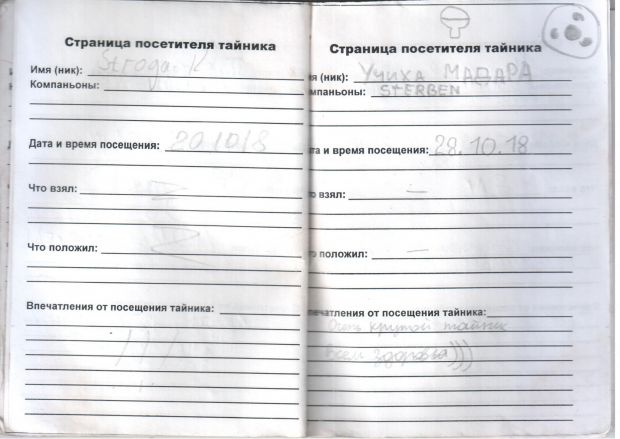 Страница посетителя тайника
Имя (ник): Stroga K
Компаньоны:
Дата и время посещения: 20.10.18
Что взял:
Что положил:
Впечатления от посещения тайника:
Страница посетителя тайника
я (ник): Учиха МАДАРА
мпаньоны: STERBEN
та и время посещения: 28.10.18
о взял: —
о положил: —
ечатления от посещения тайника:
Очень крутой тайник
Всем здоровья)))